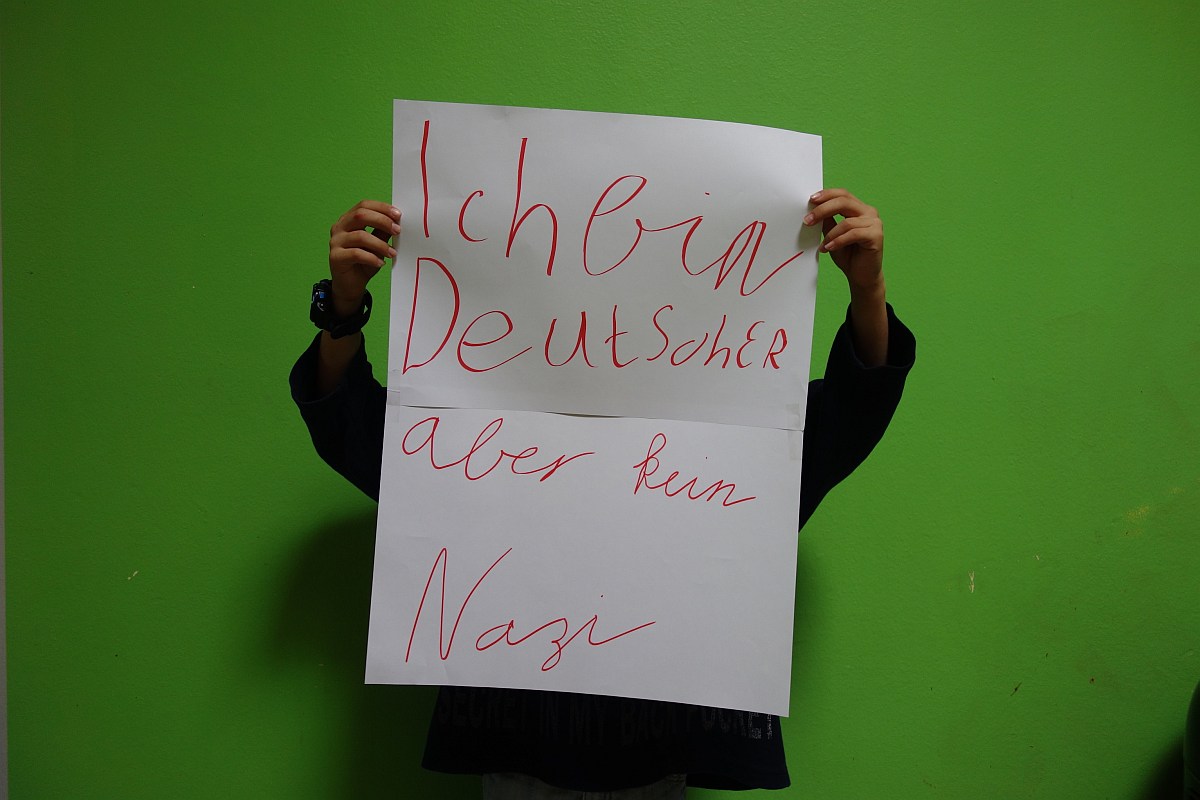 Ich bin
DeutschER
aber kein
Nazi
IN MY BACK